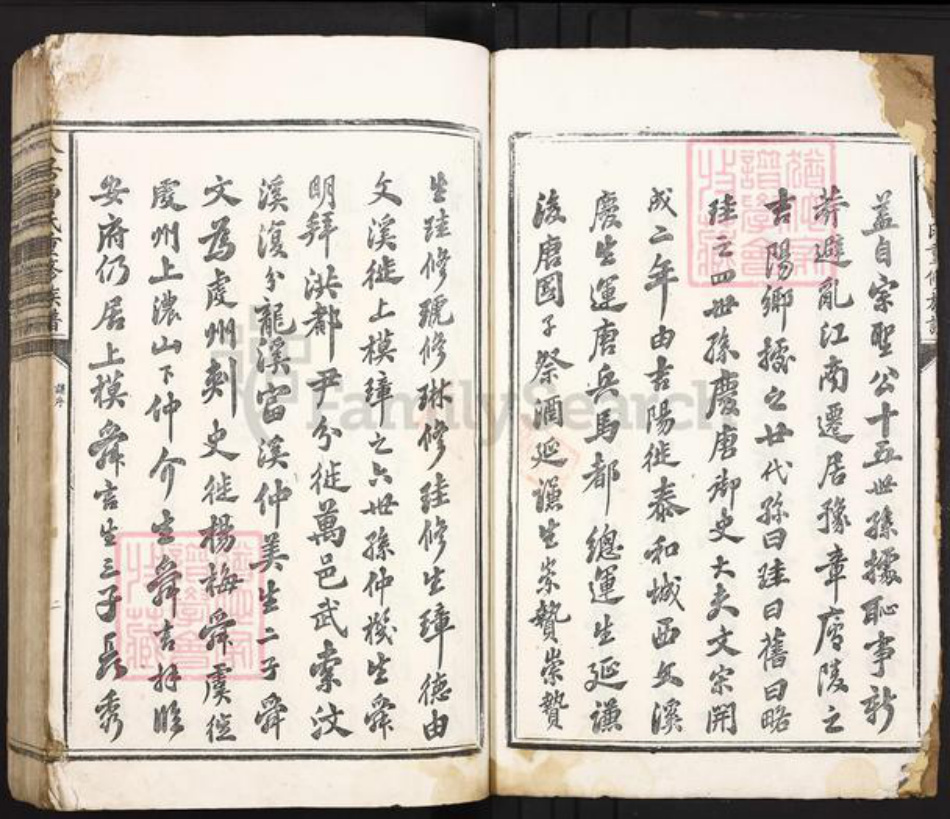 蓋自宗聖公十五世孫據恥事新
莽避亂江南遷居豫章廬陵之
吉陽鄉據之廿代孫曰珪曰舊曰略
珪之四世孫慶唐御史大夫文宗開
成二年由吉陽徙泰和城西文溪
慶生運唐兵馬都總運生延謙
後唐國子祭酒延謙生崇贊崇贊
生珪修號修琳修珪修生璋德由
文溪徙上模璋之六世孫仲機生舜
明拜洪都尹分徙萬邑武索汶
溪復分龍溪富溪仲美生二子舜
文為虔州刺史徙楊梅舜虞徙
虔州上濃山下仲介生舜言
安府仍居上模舜言生三子長秀
氏重修族譜
譜序
二
FamilySearch